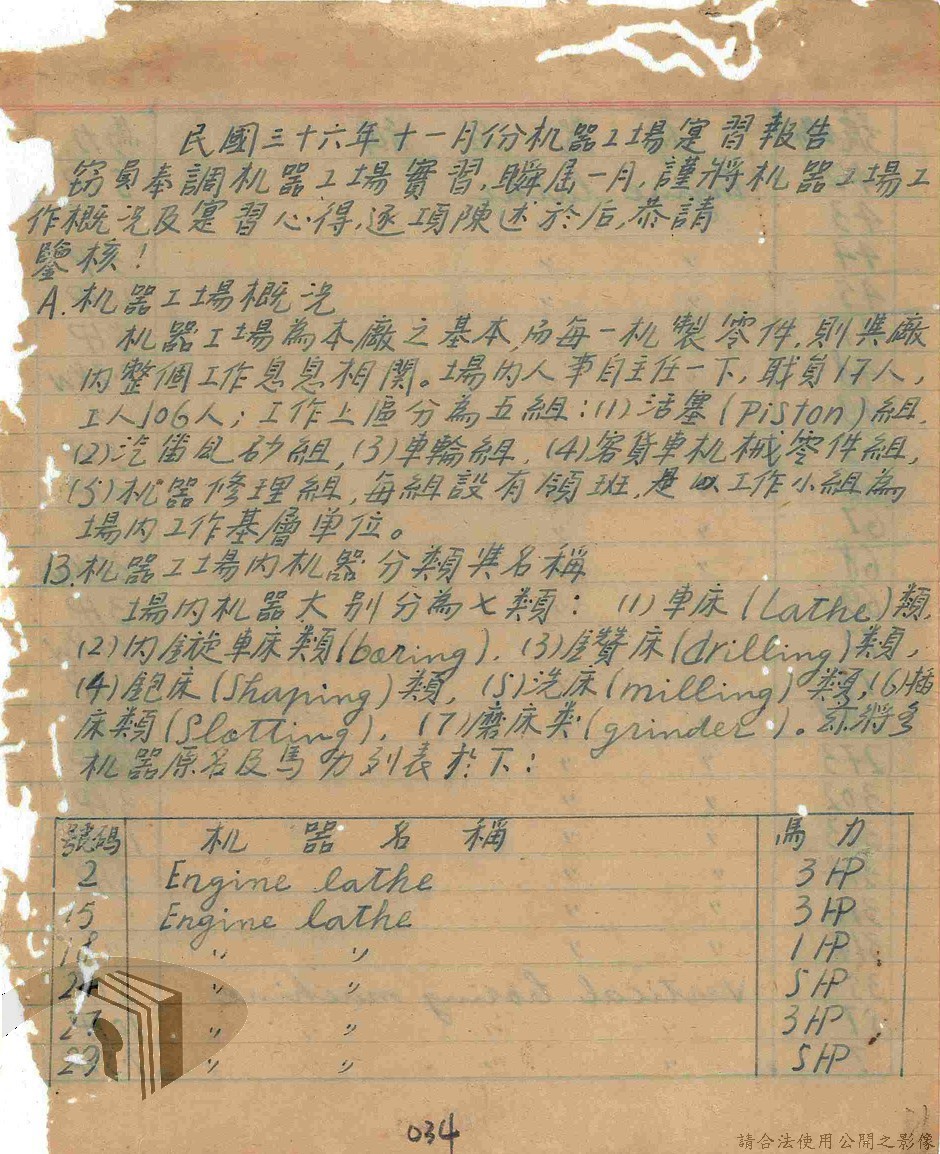 民國三十六年十一月份机器工場寔習報告
窃員奉調机器工場實習,瞬屆一月,謹將机器工場工
作概況及寔習心得,逐項陳述於后,恭請
鑒核!
A.机器工場概況
机器工場為本廠之基本,而每一机製零件,則與廠
內整個工作息息相関。場內人事自主任一下,職員17人,
工人106人;工作上區分為五組:(1)活塞(piston)組,
(2)汽笛風砂組,(3)車輪組,(4)客貨車机械零件組,
(5)机器修理組,每組設有領班,是以工作小組為
場內工作基層單位。
B.机器工場內机器分類與名稱
場內机器大別分為七類: (1)車床(lathe)類,
(2)內鏇車床類(boring), (3)鑽床(drilling)類,
(4)鉋床(shaping)類, (5)洗床(milling)類,(6)插
床類(Slotting), (7)磨床类(grinder)。茲將各
机器原名及馬力列表於下:
號碼 机器名稱 馬力
2 Engine lathe 3HP
15 Engine lathe 3HP
18 〃 〃 1HP
24 〃 〃 5HP
27 〃 〃 3HP
29 〃 〃 5HP
034
請合法使用公開之影像